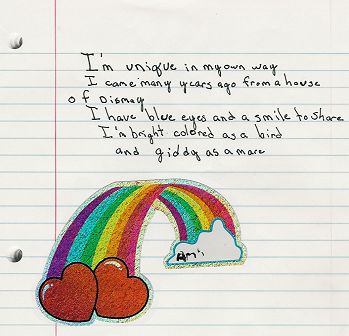 I'm unique in my own way
I came many years ago from a house
of Dismay
I have blue eyes and a smile to share
I'm bright colored as a bird
and giddy as a mare